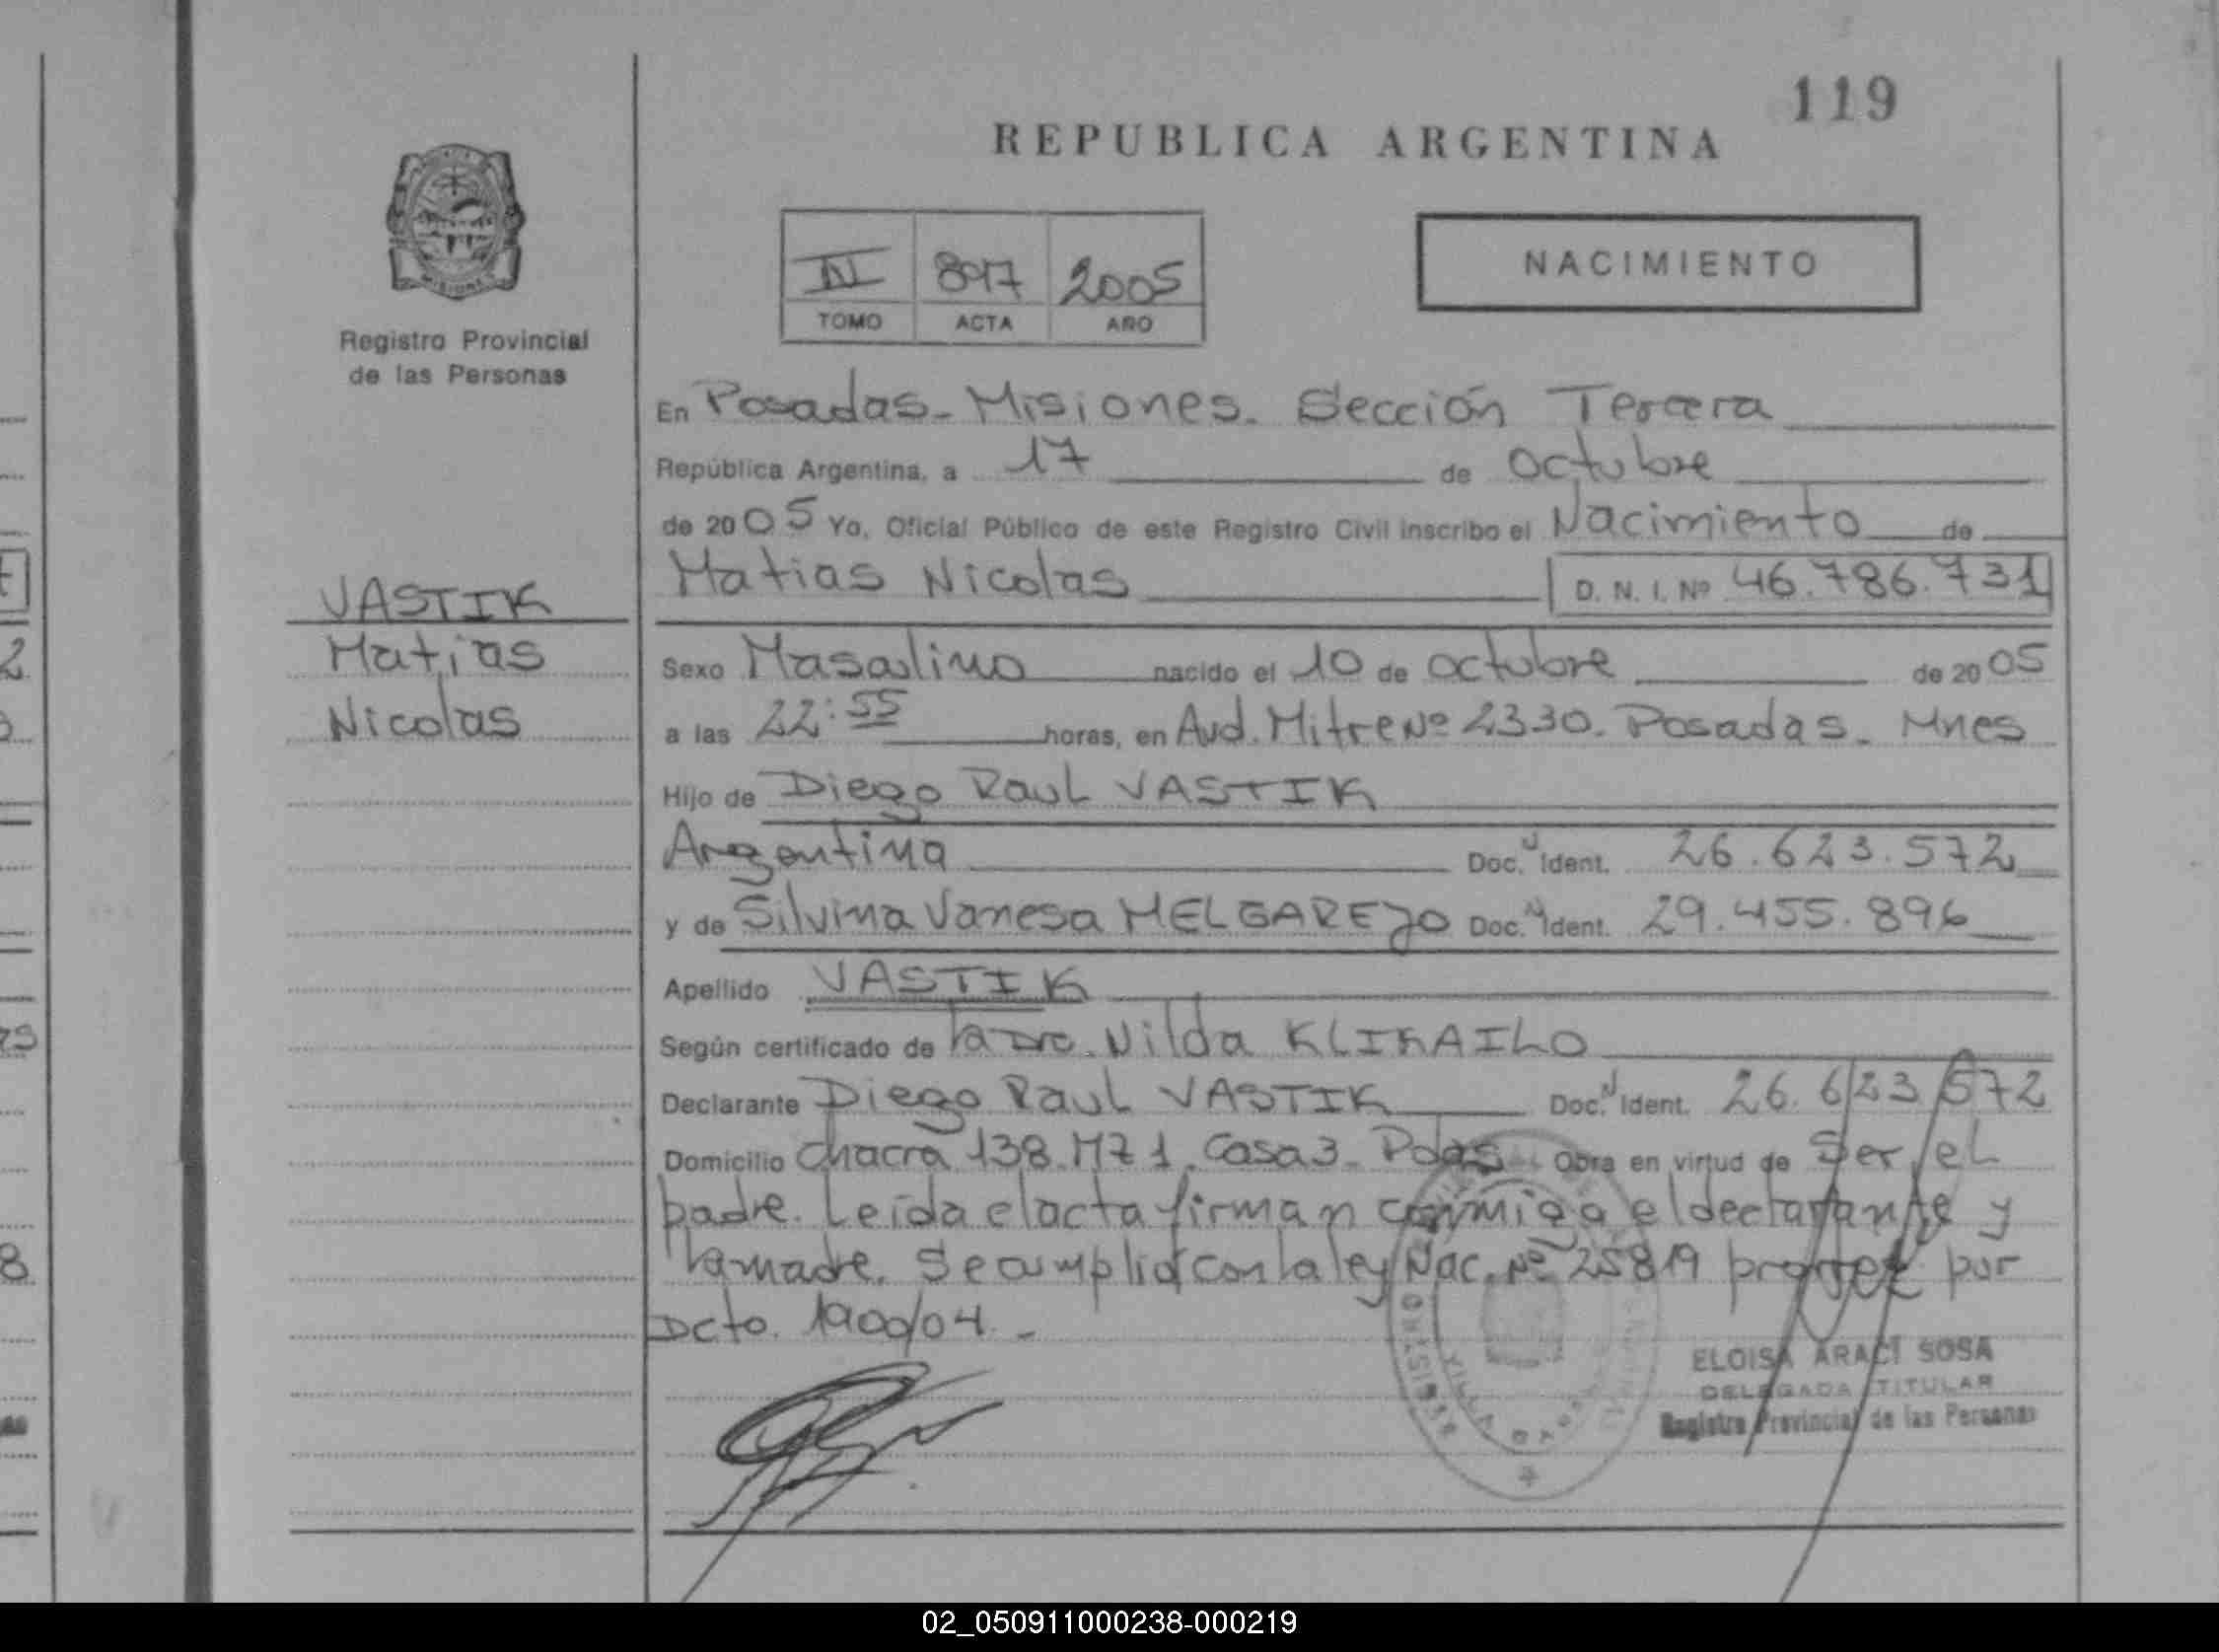 119
REPUBLICA ARGENTINA
NACIMIENTO
III 897 2005
TOMO ACTA AÑO
Registro Provincial
de las Personas
En Posadas - Misiones. Sección Tercera
República Argentina, a 17 de Octubre
de 2005 Yo, Oficial Público de este Registro Civil inscribo el Nacimiento de
Matias Nicolas D. N. I. Nº 46.786.731
VASTIK
Matias
Nicolas
Sexo Masculino nacido el 10 de octubre de 2005
a las 22:55 horas, en Avd. Mitre Nº 2330. Posadas. Mnes
Hijo de Diego Raul VASTIK
Argentina Doc. N Ident. 26.623.572
y de Silvina Vanesa MELGAREJO Doc. N Ident. 29.455.896
Apellido VASTIK
Según certificado de la Dra. Nilda KLIKAILO
Declarante Diego Raul VASTIK Doc. N Ident. 26.623.572
Domicilio chacra 138. MZ 1. Casa 3. Pdas Obra en virtud de Ser el
padre. Leída el acta firman conmigo el declarante y
la madre. Se cumplió con la ley Nac. Nº 25819 por
Dcto. 1900/04. -
ELOISA ARACI SOSA
DELEGADA TITULAR
Registro Provincial de las Personas
02_050911000238-000219